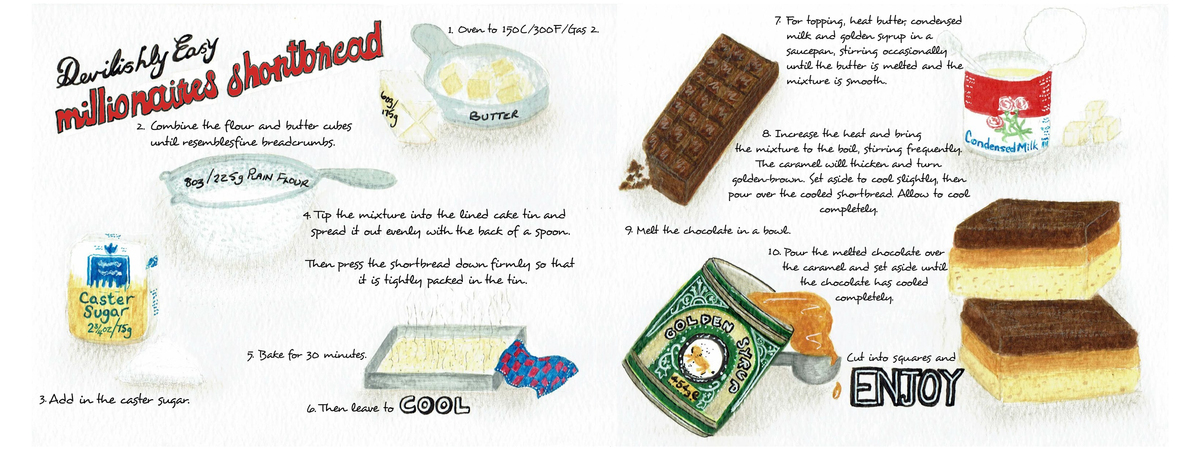 Devilishly Easy
millionaires shortbread
1. Oven to 150C/300F/Gas 2.
6oz/
175g
BUTTER
2. Combine the flour and butter cubes
until resemblesfine breadcrumbs.
8oz/225g PLAIN FLOUR
Caster
Sugar
2¾oz/75g
3. Add in the caster sugar.
4. Tip the mixture into the lined cake tin and
spread it out evenly with the back of a spoon.
Then press the shortbread down firmly so that
it is tightly packed in the tin.
5. Bake for 30 minutes.
6. Then leave to COOL
7. For topping, heat butter, condensed
milk and golden syrup in a
saucepan, stirring occasionally
until the butter is melted and the
mixture is smooth.
Condensed Milk
8. Increase the heat and bring
the mixture to the boil, stirring frequently.
The caramel will thicken and turn
golden-brown. Set aside to cool slightly, then
pour over the cooled shortbread. Allow to cool
completely.
9. Melt the chocolate in a bowl.
10. Pour the melted chocolate over
the caramel and set aside until
the chocolate has cooled
completely.
GOLDEN
SYRUP
454g
Cut into squares and
ENJOY